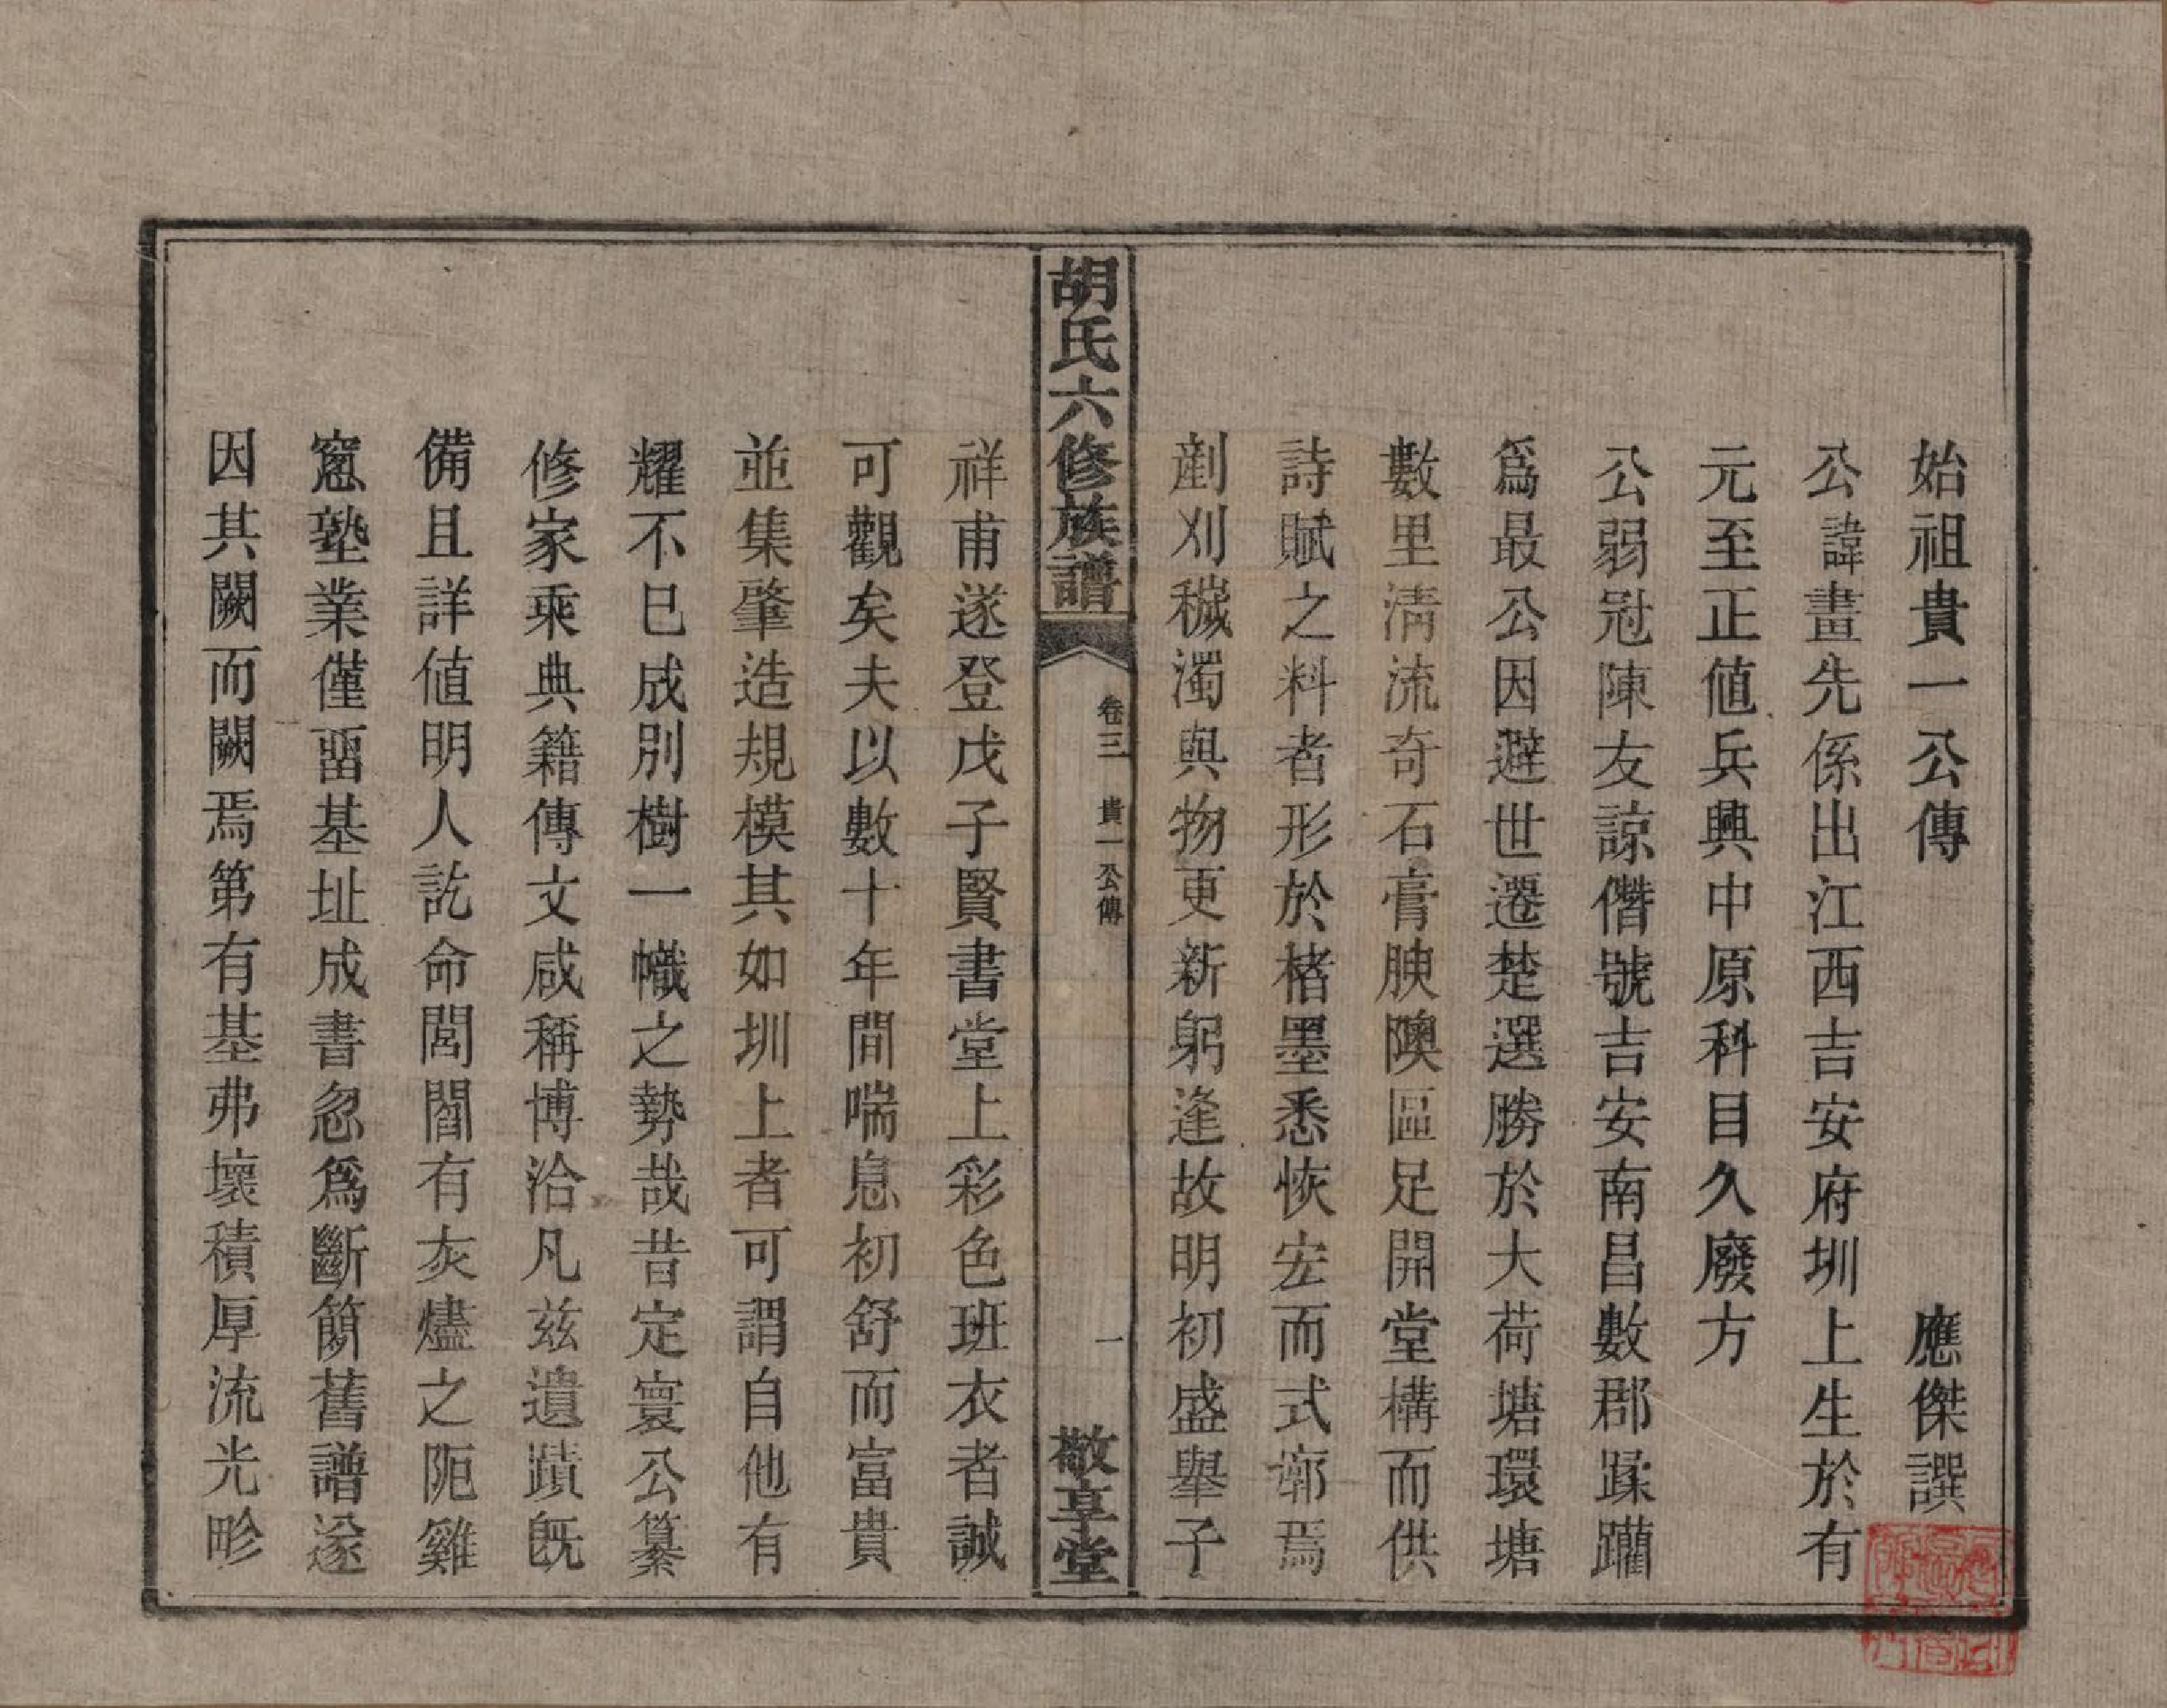 始祖貴一公傳 應傑譔
公諱畫先係出江西吉安府圳上生於有
元至正值兵興中原科目久廢方
公弱冠陳友諒僭號吉安南昌數郡蹂躪
爲最公因避世遷楚選勝於大荷塘環塘
數里清流奇石膏腴隩區足開堂構而供
詩賦之料者形於楮墨悉恢宏而式廓焉
剷刈穢濁與物更新躬逢故明初盛舉子
祥甫遂登戊子賢書堂上彩色班衣者誠
可觀矣夫以數十年間喘息初舒而富貴
並集肇造規模其如圳上者可謂自他有
耀不已成別樹一幟之勢哉昔定寰公纂
修家乘典籍傳文咸稱博洽凡兹遺蹟既
備且詳値明人訖命閭閻有灰燼之阨雞
窻塾業僅畱基址成書忽爲斷簡舊譜遂
因其闕而闕焉第有基弗壞積厚流光畛
胡氏六修族譜
卷三 貴一公傳
一
敬享堂